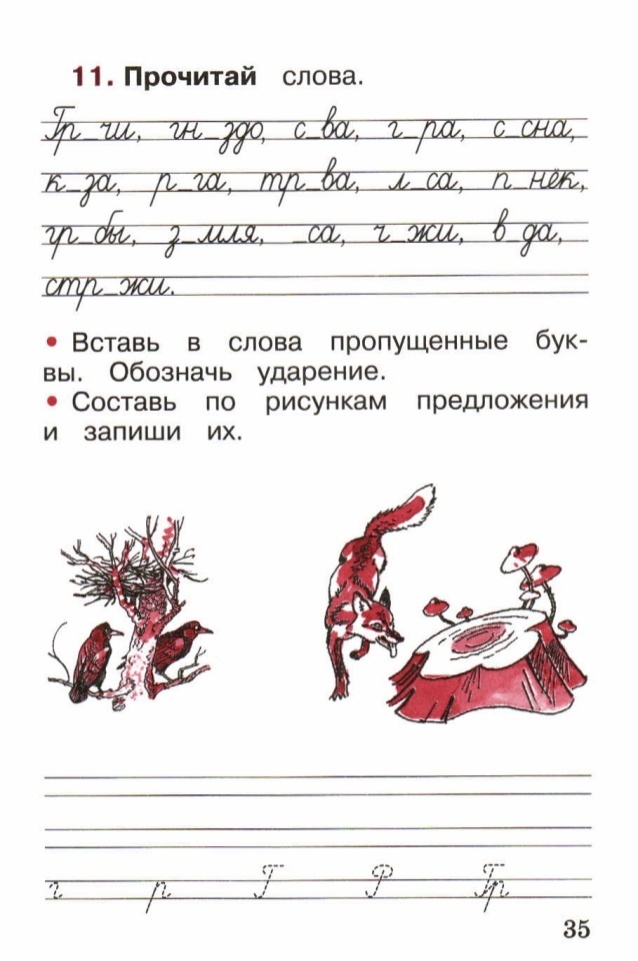 11. Прочитай слова.
Гр_чи, гн_здо, с_ва, г_ра, с_сна,
к_за, р_га, тр_ва, л_са, п_нёк,
гр_бы, з_мля, _са, ч_жи, в_да,
стр_жи.
• Вставь в слова пропущенные бук-
вы. Обозначь ударение.
• Составь по рисункам предложения
и запиши их.
г р Г Р Гр
35